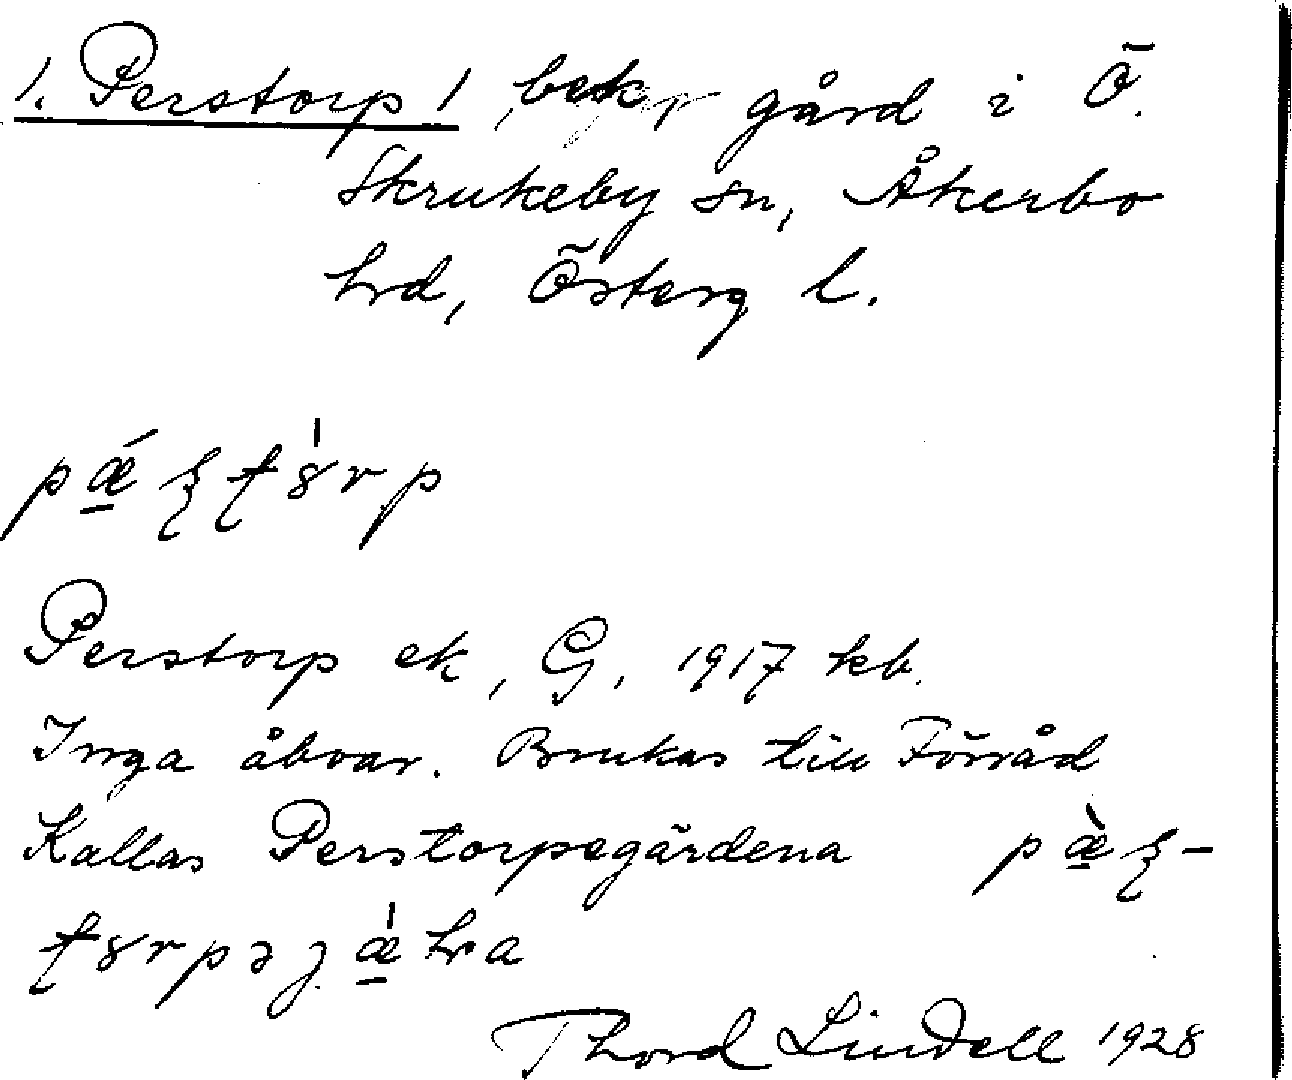 1. Perstorp 1 bek, gård i Ö.
Skrukeby sn, Åkerbo
hrd, Österg l.
Perstorp ek, G, 1917 kb.
Inga åboar. Brukas till Förråd
Kallas Perstorpegärdena
Thord Lindell 1928